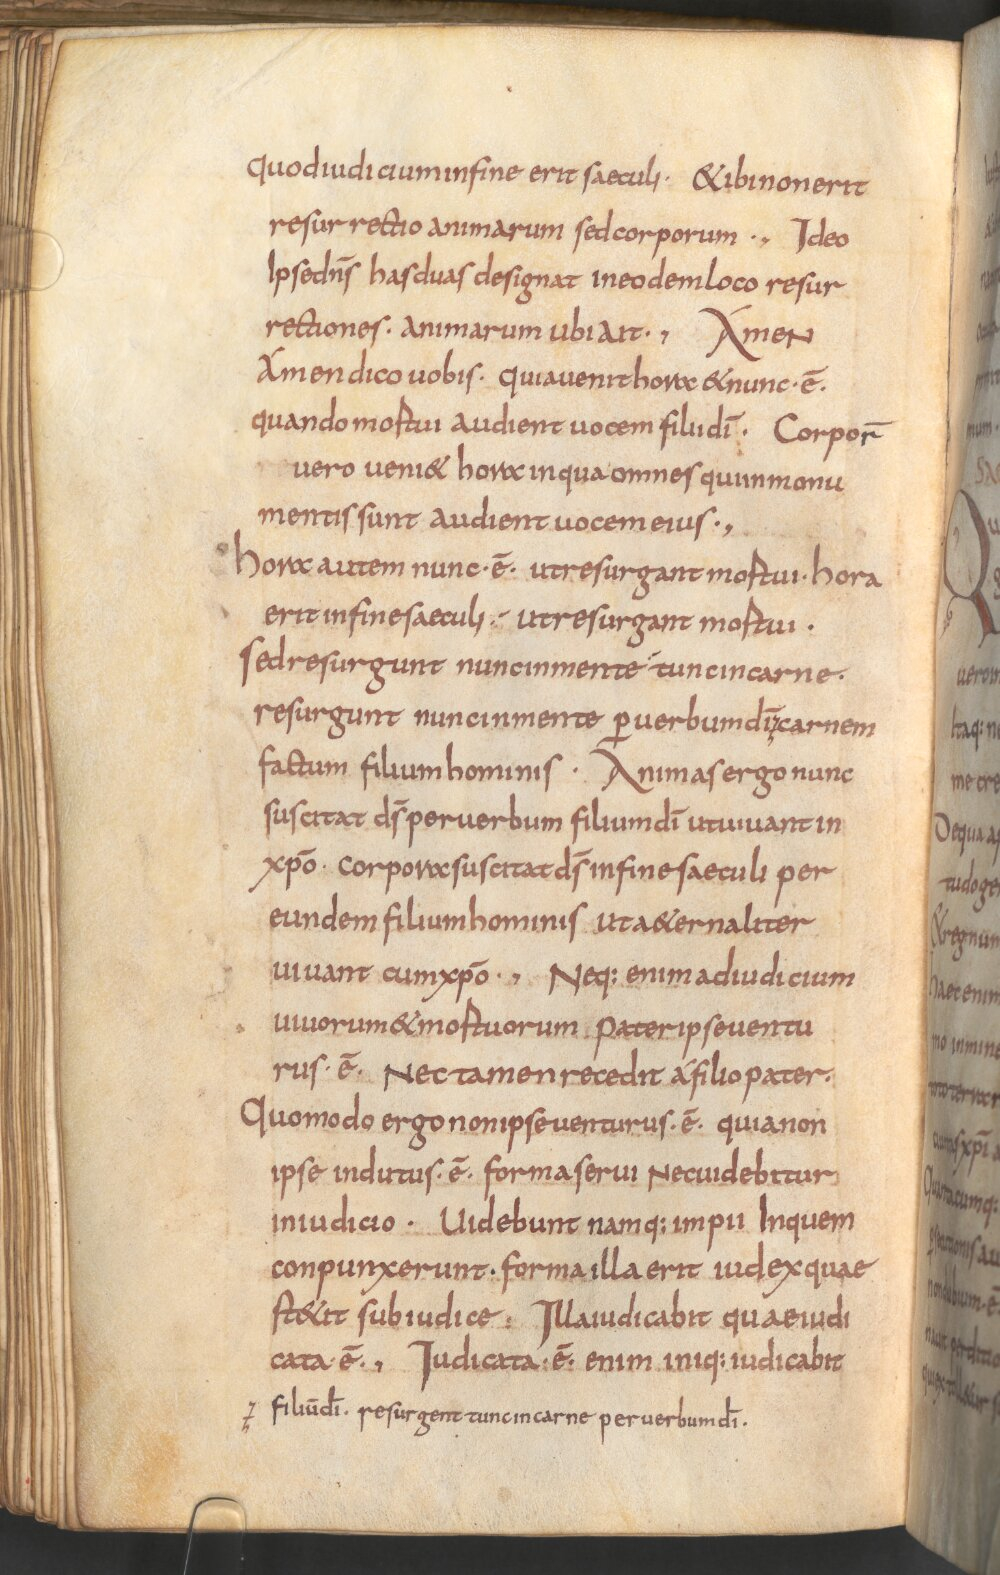 quod iudicium in fine erit saeculi. & ibi non erit
resurrectio animarum sed corporum ., Ideo
Ipse dn̄s has duas designat in eodem loco resur
rectiones. animarum ubi ait ., Ámen
Ámen dico uobis. quia uenit hora & nunc . ē.
quando mortui audient uocem filii dī . Corpor̄
uero ueni& hora in qua omnes qui in monu
mentis sunt audient uocem eius .,
hora autem nunc . ē. ut resurgant mortui. hora
erit in fine saeculi . ut resurgant mortui .
sed resurgunt nunc in mente tunc in carne.
resurgunt nunc in mente ꝑ uerbum dī carnem
factum filium hominis . Animas ergo nunc
suscitat ds̄ per uerbum filium dī ut uiuant in
xp̄o. corpora suscitat ds̄ in fine saeculi per
eundem filium hominis ut a&ernaliter
uiuant cum xp̄o ., Neq: enim ad iudicium
uiuorum & mortuorum pater ipse uentu
rus . ē. Nec tamen recedit á filio pater.
Quomodo ergo non ipse uenturus . ē. quia non
ipse indutus . ē. forma serui nec uidebitur
in iudicio . Uidebunt namq: impii In quem
conpunxerunt. forma illa erit iudex quae
st&it sub iudice . Illa iudicabit quae iudi
cata . ē ., Iudicata . ē. enim iniq: iudicabit
filiū dī. resurgent tunc in carne per uerbum dī.
uerom
Itaq: ne
me cre
De qua a
tudo ge
& regnum
haec enim